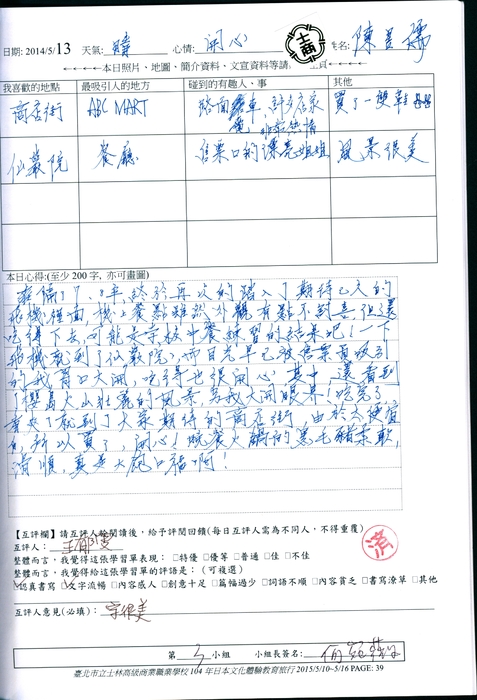 日期: 2014/5/13 天氣: 晴 心情: 開心 姓名: 陳
士商
←←←←本日照片、地圖、簡介資料、文宣資料等請 頁←←←←
我喜歡的地點 最吸引人的地方 碰到的有趣人、事 其他
商店街 ABC MART 路面電車、 店家 買了一雙鞋
非常熱情
仙巖院 餐廳 售票口的漂亮姐姐 風景很美
本日心得:(至少 200 字, 亦可畫圖)
年,終於再次的踏入了期待已久的
飛機裡面,機上餐點雖然外觀有點不到 但還
吃得下去,可能是學校中餐練習的結果吧!一下
飛機就到了仙巖院,而目光早已被
的我胃口大開,吃得也很開心,其中,還看到
了櫻島火山壯麗的風景,為我大開眼界!吃完了,
就到了大家期待的商店街,由於太便宜
所以買了,開心!晚餐火鍋的黑毛豬柔軟,
滑順,真是大飽口福啊!
【互評欄】請互評人於閱讀後,給予評閱回饋(每日互評人需為不同人,不得重覆)
互評人:王
整體而言,我覺得這張學習單表現:□特優 □優等 □普通 □佳 □不佳
整體而言,我覺得給這張學習單的評語是:(可複選)
認真書寫 文字流暢 □內容感人 □創意十足 □篇幅過少 □詞語不順 □內容貧乏 □書寫潦草 □其他
互評人意見(必填):字很美
第 3 小組 小組長簽名:
臺北市立士林高級商業職業學校 104 年日本文化體驗教育旅行 2015/5/10~5/16 PAGE: 39